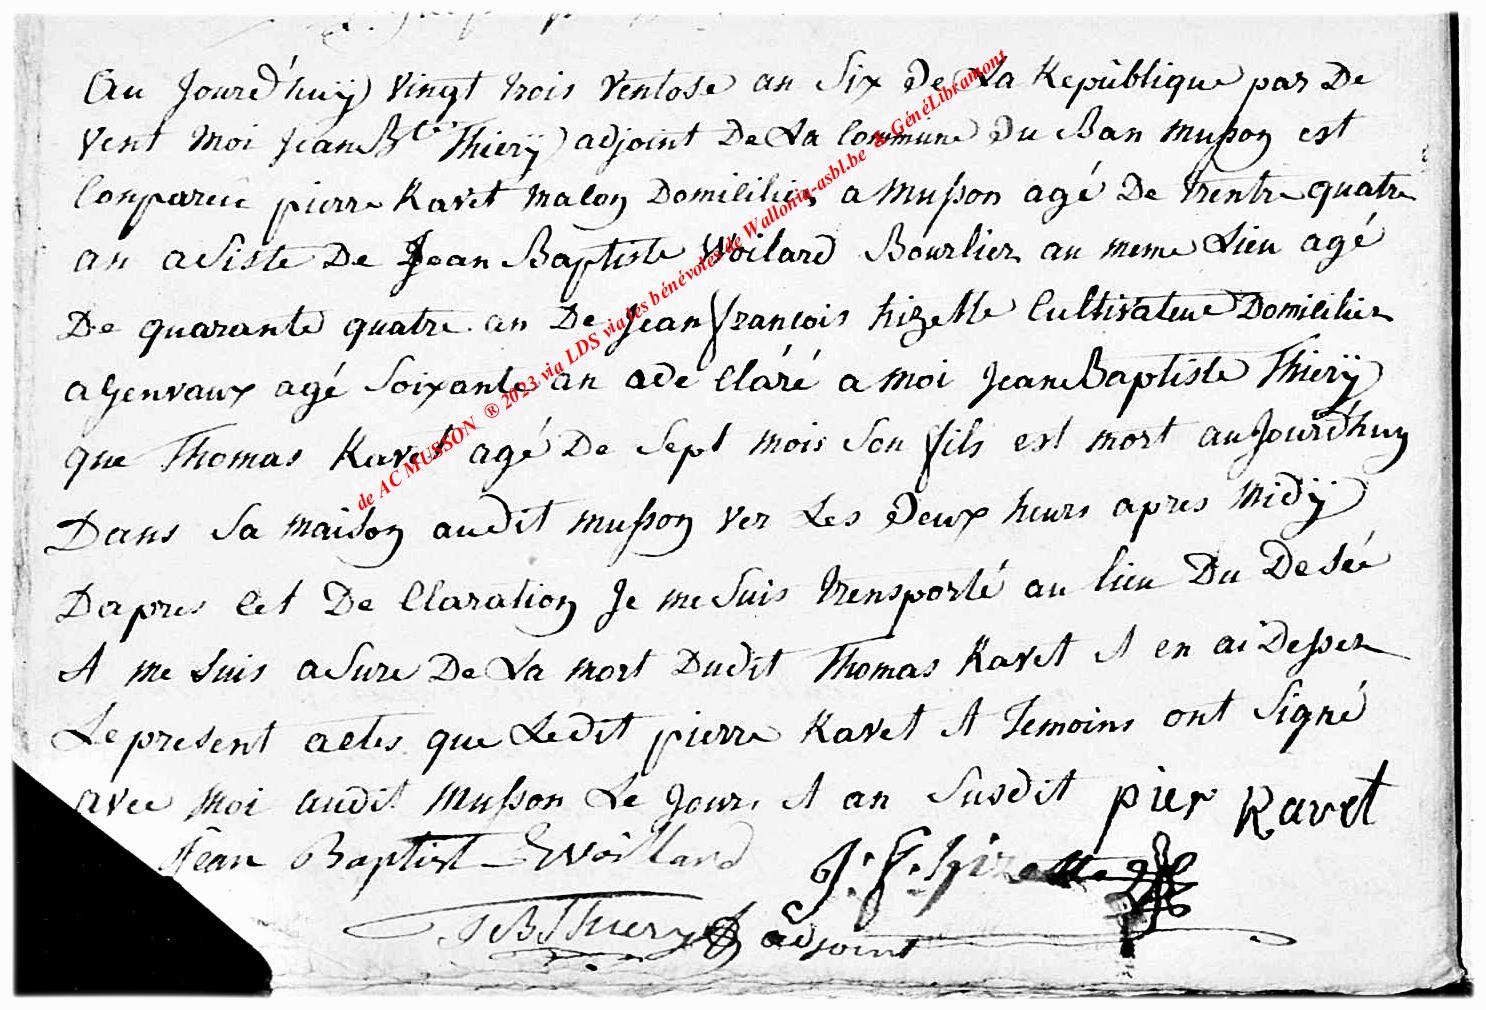 Au Jourd'huÿ vingt trois ventose an Six de La Republique par De
vent moi Jean Bte Thierÿ adjoint De La Commune Du Ban Musson est
Comparue pierre Ravet Malon Domicilier a Musson agé De trentre quatre
an asiste De Jean Baptiste Woilard Bourlier au meme Lieu agé
De quarante quatre an De Jean francois hizette Cultivateur Domicilier
a Genvaux agé Soixante an a de Claré a moi Jean Baptiste Thierÿ
que Thomas Ravet agé De Sept mois Son fils est mort au Jourd'huy
Dans Sa maison audit musson ver Les Deux heurs apres midÿ
Dapres Cet De Claration Je me Suis trensporté au lieu Du Desée
et me suis asure De La mort Dudit Thomas Ravet et en ai Desser
Le present actes que Ledit pierre Ravet et Temoins ont Signé
avec moi audit Musson Le Jour et an Susdit pier Ravet
Jean Baptist Woillard J. F. hizette
JB Thiery adjoint
de AC MUSSON ® 2023 via LDS via les bénévoles de Wallonia-asbl.be & GénéLibramont